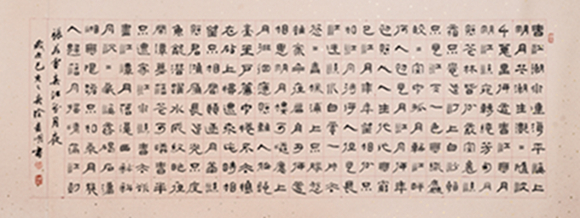 春江潮水連海平海上
明月共潮生灩灩隨波
千萬里何處春江無月
明江流宛轉繞芳甸月
照花林皆似霰空裏流
霜不覺飛汀上白沙看
不見江天一色無纖塵
皎皎空中孤月輪江畔
何人初見月江月何年
初照人人生代代無窮
已江月年年望相似不
知江月待何人但見長
江送流水白雲一片去
悠悠青楓浦上不勝愁
誰家今夜扁舟子何處
相思明月樓可憐樓上
月徘徊應照離人妝鏡
臺玉戶簾中卷不去擣
衣砧上拂還來此時相
望不相聞願逐月華流
照君鴻雁長飛光不度
魚龍潛躍水成紋昨夜
閒潭夢落花可憐春半
不還家江水流春去欲
盡江潭落月復西斜斜
月沉沉藏海霧碣石瀟
湘無限路不知乘月幾
人歸落月搖情滿江樹
張若虛春江花月夜
歲次己亥之春徐書